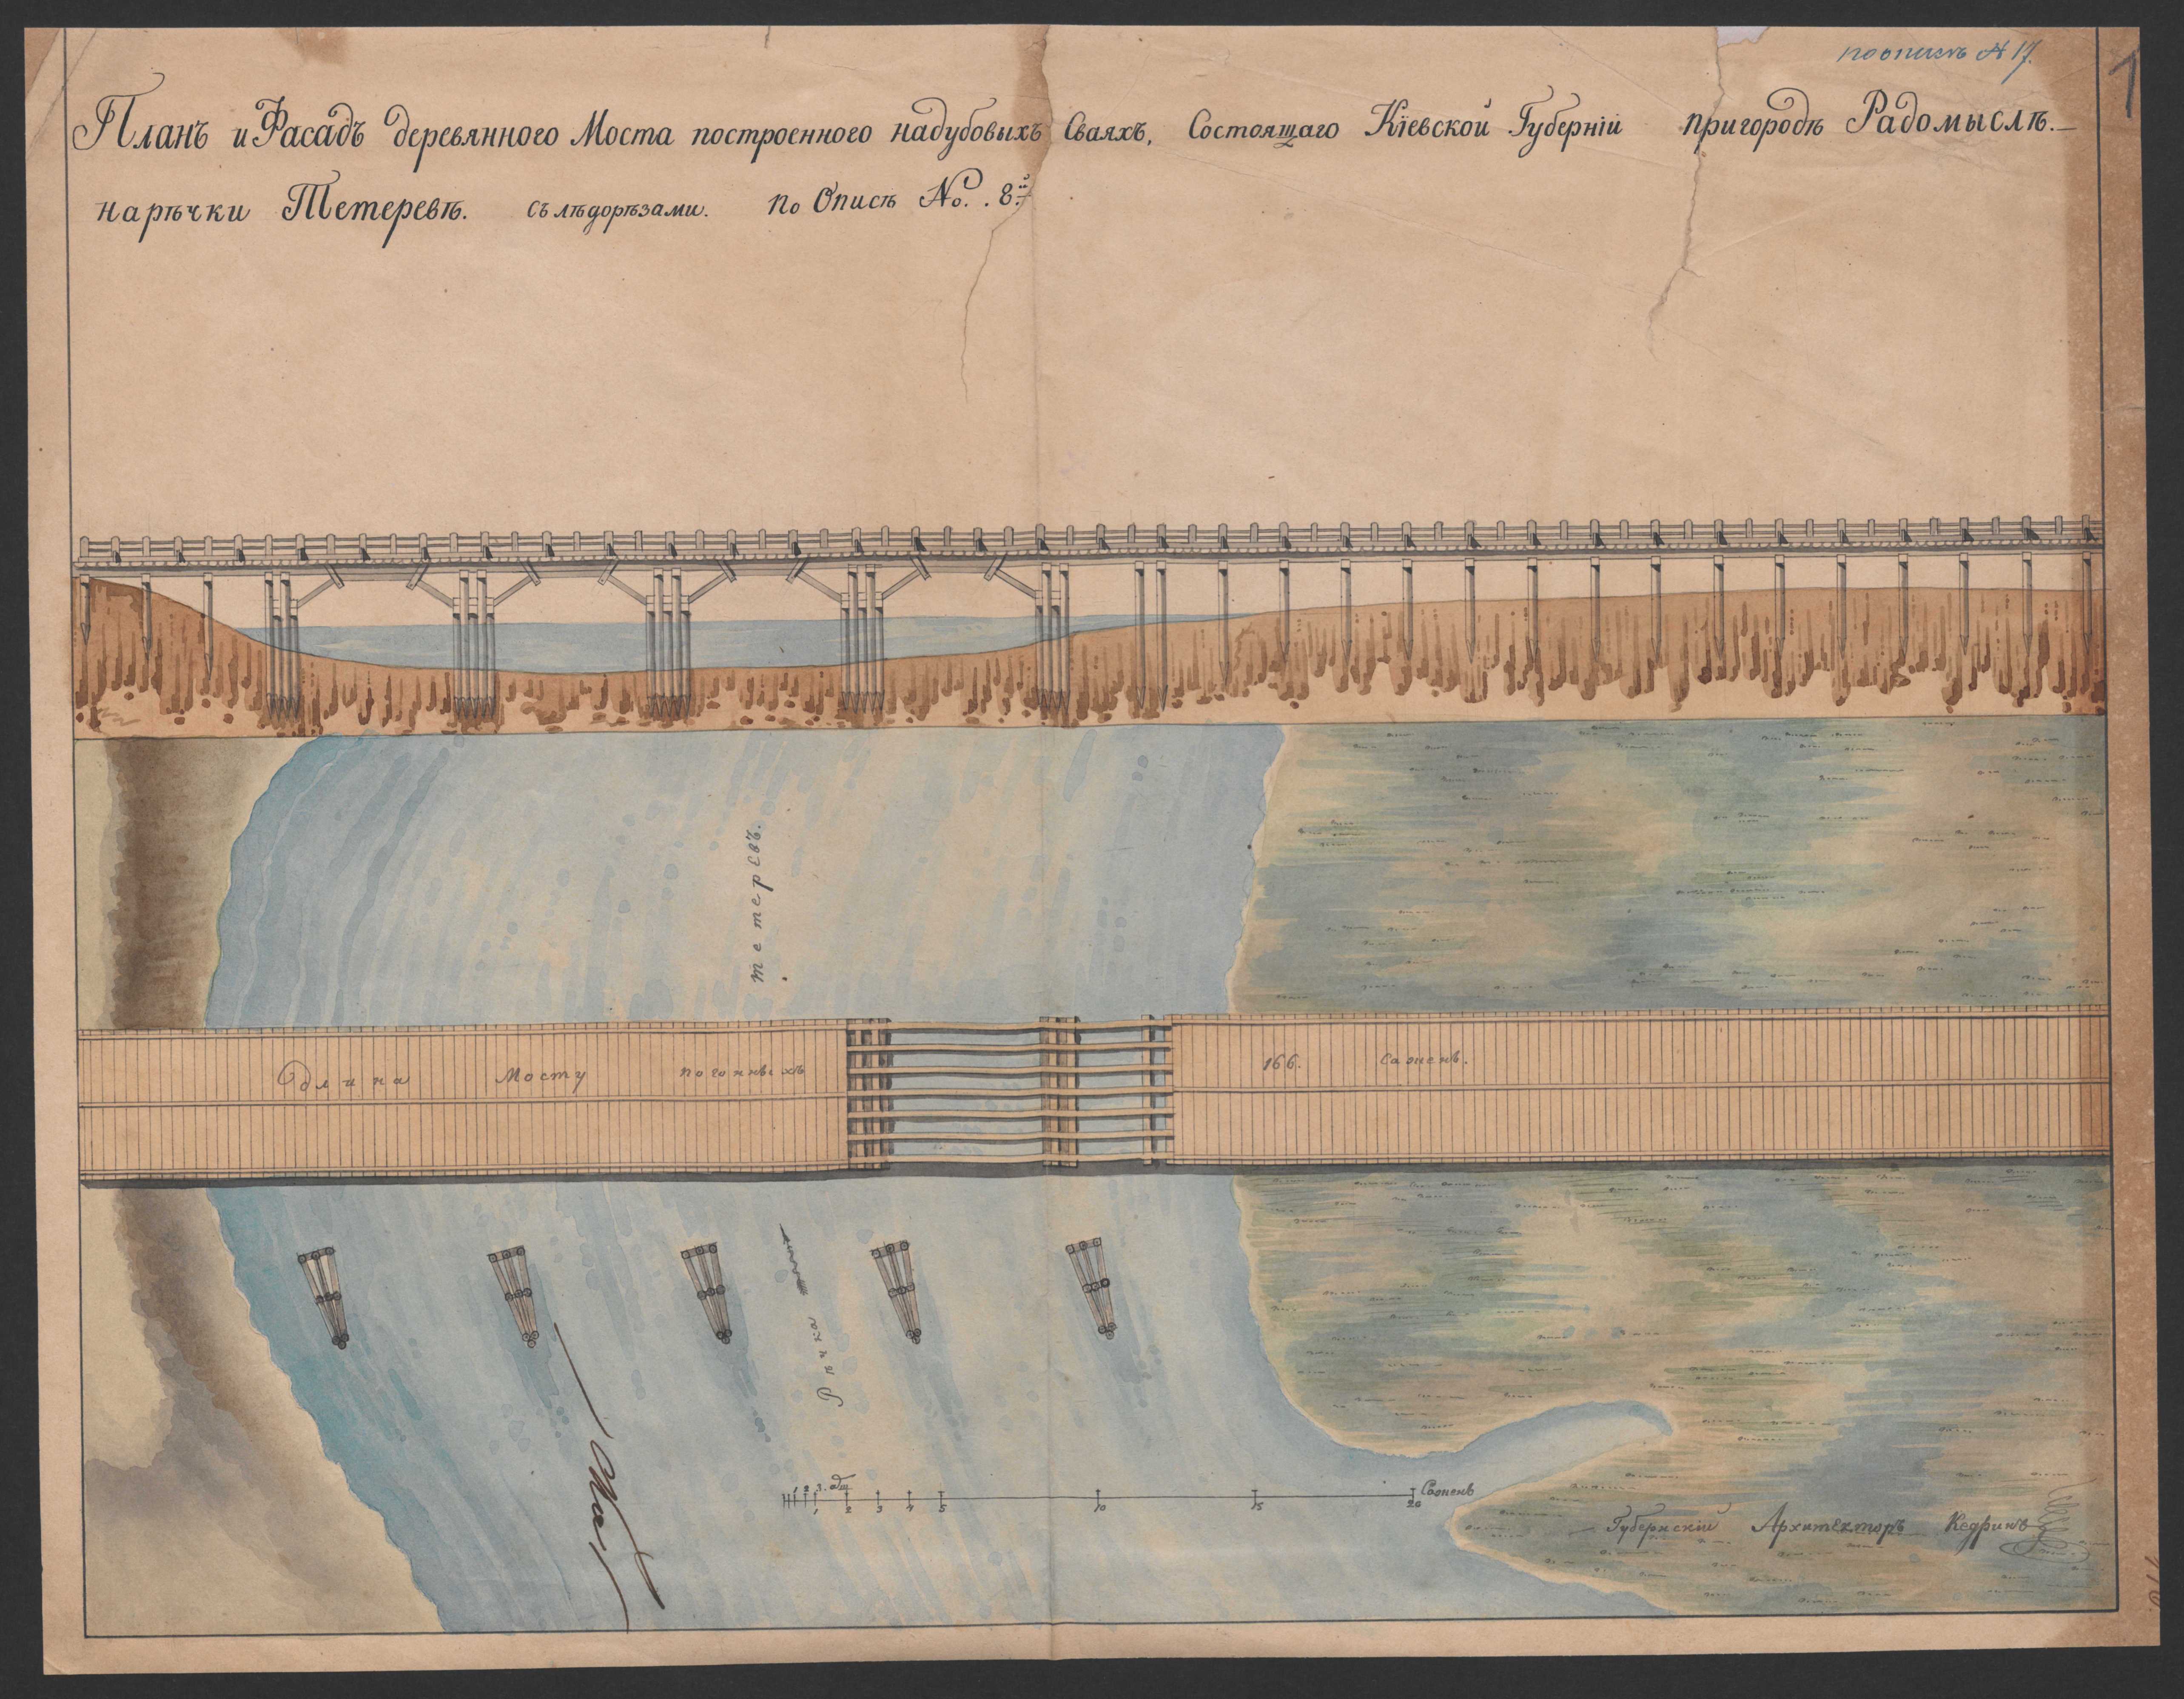 поопись № 17.
1
Планъ и Фасадъ деревянного Моста построенного надубовыхъ Сваяхъ, Состоящаго Кіевской Губерніи пригородѣ Радомыслѣ.
нарѣчки Тетеревѣ. съ лѣдорѣзами. по Описѣ No. 8й
тетеревъ.
Длина Мосту погонныхъ 166. Сажень.
Рѣчка
1 2 3. ар
1 2 3 4 5 10 15 20 Сажень
Губернскій Архитекторъ Кедринъ